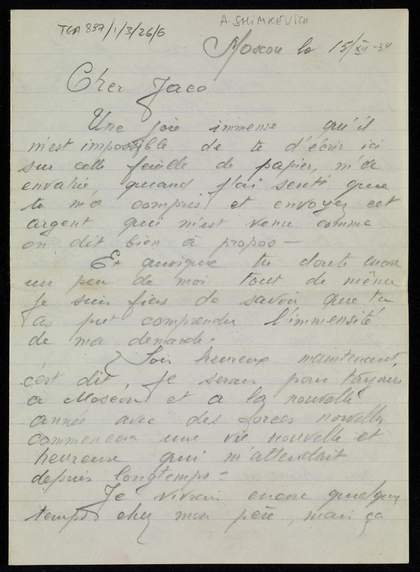 TGA 897/1/3/26/6
A. SHIMKEVICH
Moscou le 15/XII-34
Cher Jaco
Une joie immense qu'il
m'est impossible de te d'écrir ici
sur cette feuille de papier, m'a
envahie, quand j'ai senti que
tu ma compris et envoyer cet
argent qui m'est venu comme
on dit bien à propos —
Et quoique tu doute encore
un peu de moi tout de même
je suis fier de savoir que tu
as put comprendre l'immensité
de ma demande.
Sois heureux maintenant,
c'est dit, je serais pour toujours
a Moscou et a la nouvelle
année avec des forces nouvelles
commencerai une vie nouvelle et
heureuse qui m'attendait
depuis longtemps —
Je vivrai encore quelques
temps chez mon père, mais ça